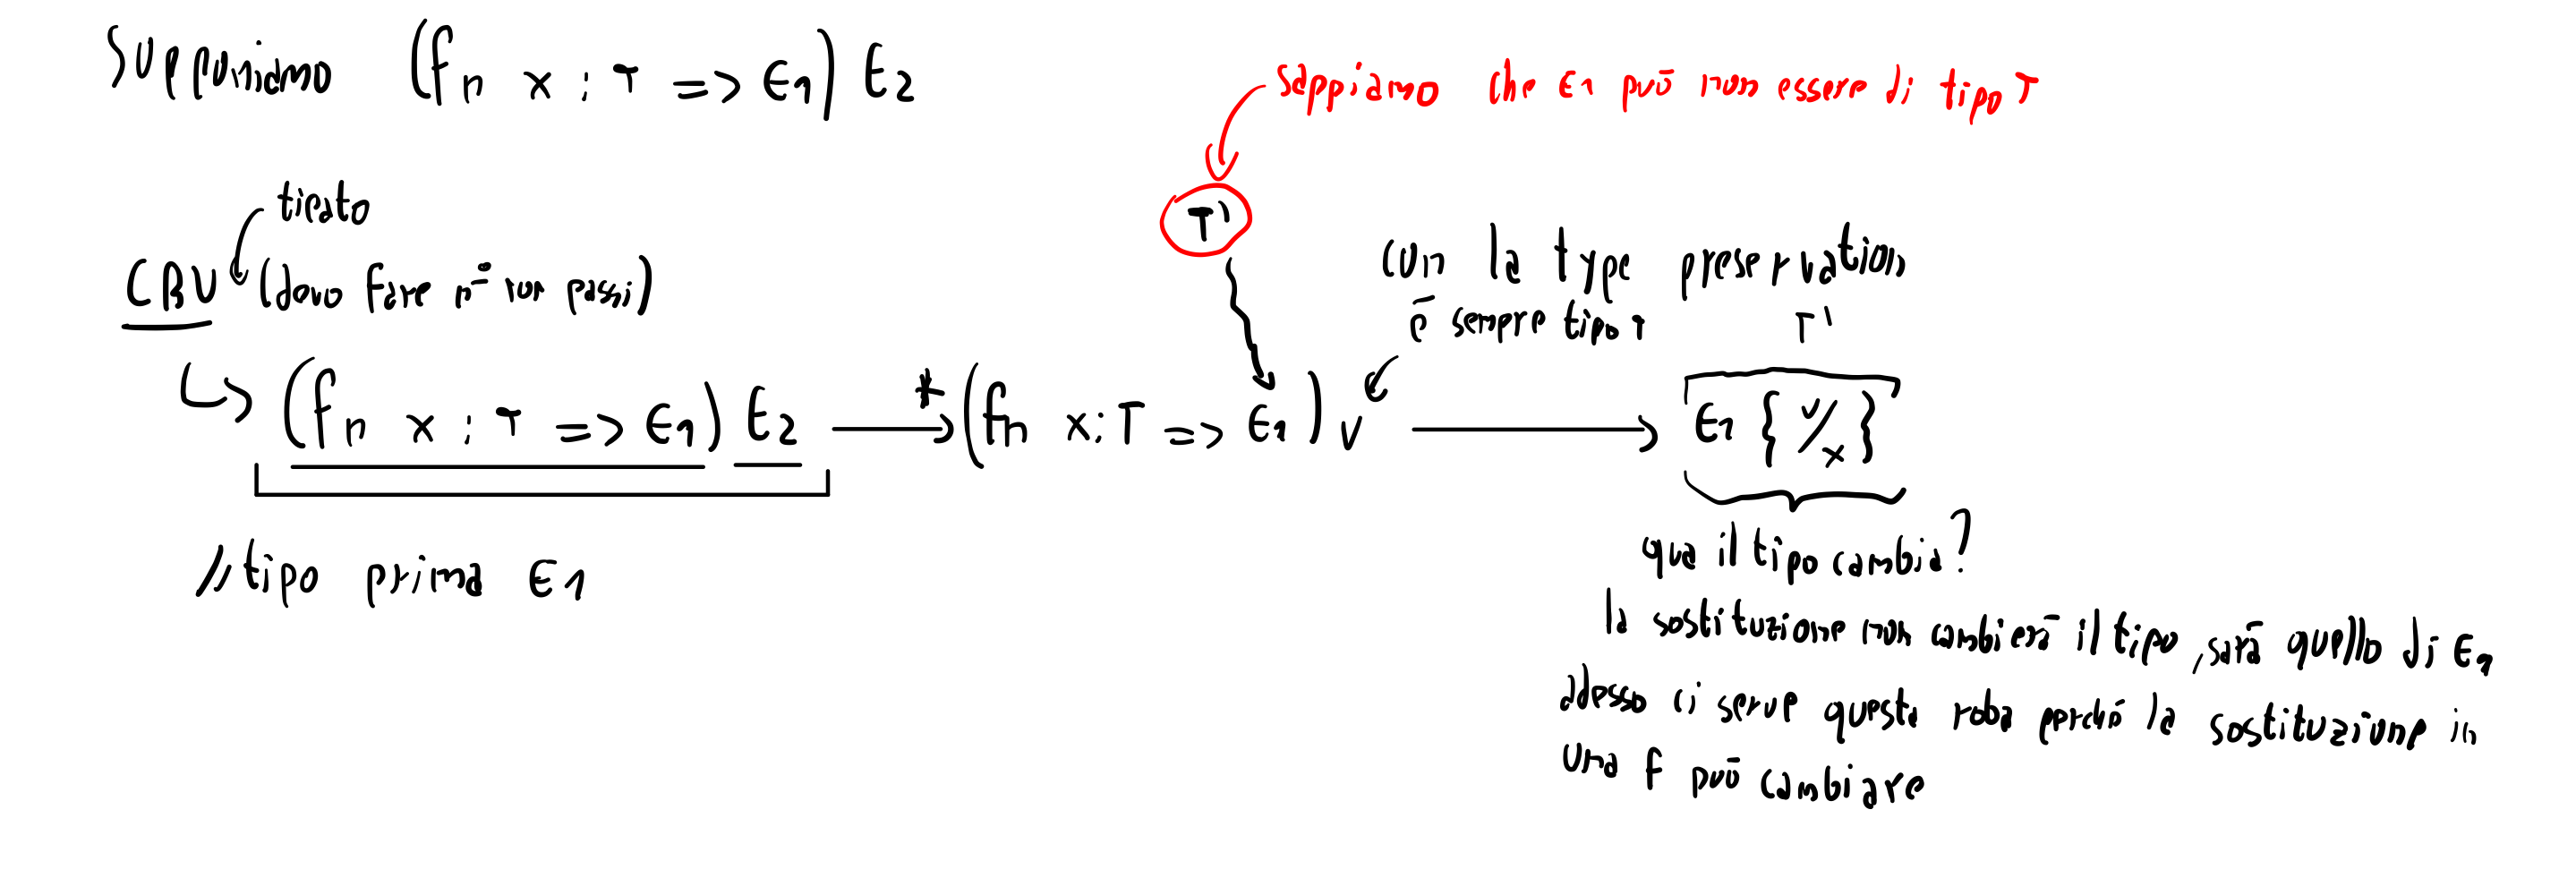 Supponiamo (fn x : T => E1) E2
sappiamo che E1 può non essere di tipo T
tipato
T'
CBV (devo fare n° passi)
con la type preservation
è sempre tipo T
T'
(fn x : T => E1) E2 →* (fn x : T => E1) v → E1 {v/x}
// tipo prima E1
qua il tipo cambia?
la sostituzione non cambierà il tipo, sarà quello di E1
adesso ci serve questa roba perché la sostituzione in
una f può cambiare